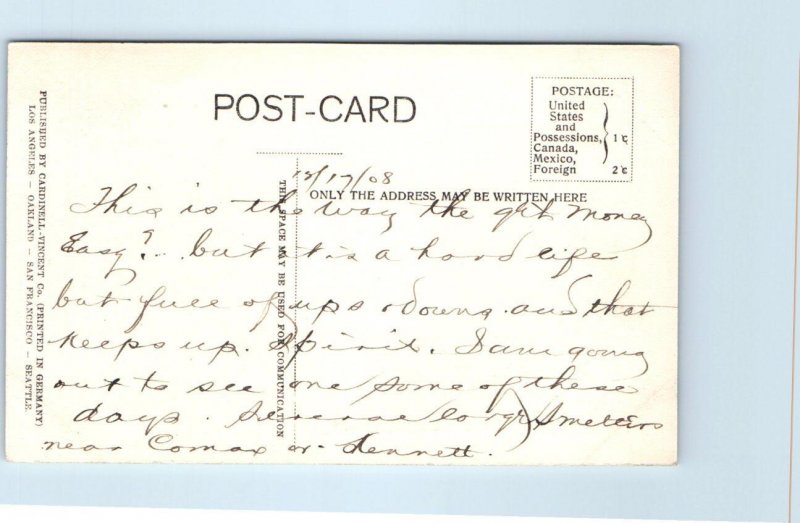 POST-CARD
POSTAGE:
United
States
and
Possessions, 1¢
Canada,
Mexico,
Foreign 2¢
12/17/08
ONLY THE ADDRESS MAY BE WRITTEN HERE
THIS SPACE MAY BE USED FOR COMMUNICATION
PUBLISHED BY CARDINELL-VINCENT Co. (PRINTED IN GERMANY)
LOS ANGELES – OAKLAND – SAN FRANCISCO – SEATTLE.
This is the way the get money
Easy? .. but it is a hard life
but full of ups & downs. and that
keeps up. Spirit. I am going
out to see one some of these
days. Several large Smelters
near or Kennett.